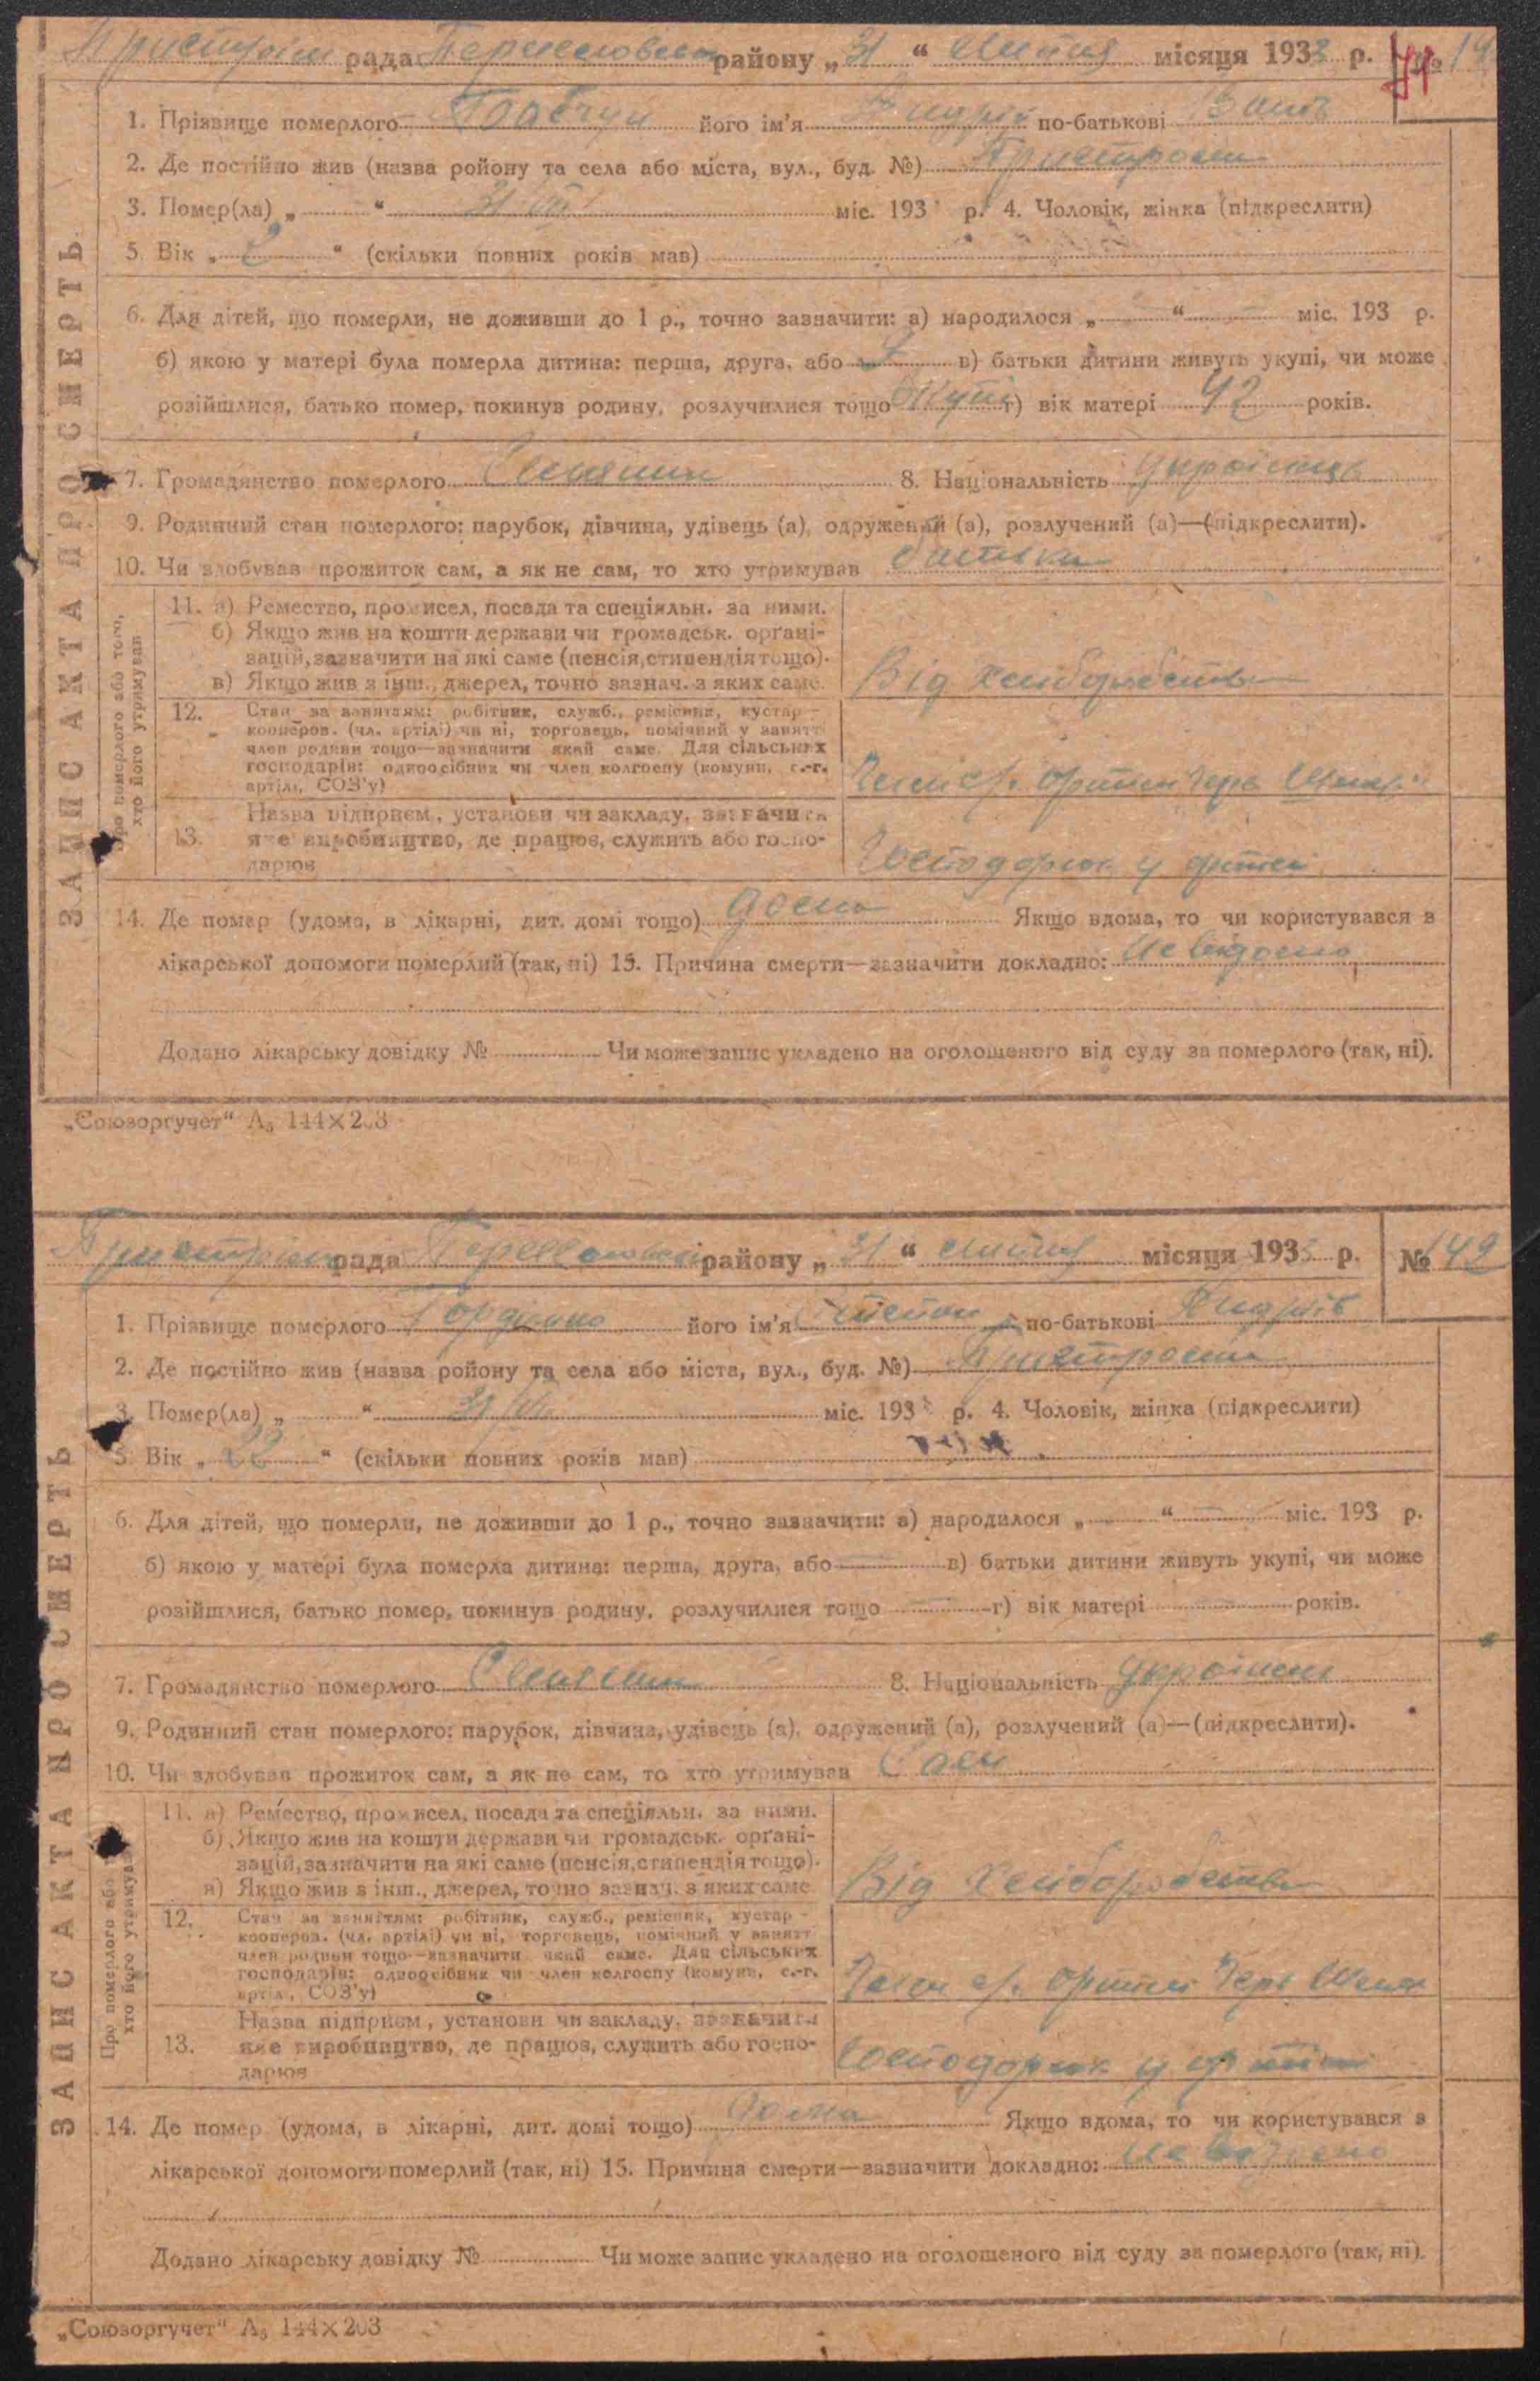 рада району „ 31 “ липня місяця 1933 р. № 14
71
1. Прізвище померлого його ім'я Андрій по-батькові
2. Де постійно жив (назва ройону та села або міста, вул., буд. №) Пристроми
3. Помер(ла) „ “ 31/VII міс. 193 р. 4. Чоловік, жінка (підкреслити)
5. Вік „ 2 “ (скільки повних років мав)
6. Для дітей, що померли, не доживши до 1 р., точно зазначити: а) народилося „ — “ — міс. 193 р.
б) якою у матері була померла дитина: перша, друга, або в) батьки дитини живуть укупі, чи може
розійшлися, батько помер, покинув родину, розлучилися тощо Вкупі г) вік матері 42 років.
7. Громадянство померлого 8. Національність українець
9. Родинний стан померлого: парубок, дівчина, удівець (а), одружений (а), розлучений (а)—(підкреслити).
10. Чи здобував прожиток сам, а як не сам, то хто утримував батьки
ЗАПИС АКТА ПРО СМЕРТЬ
Про померлого або того, хто його утримував
11. а) Ремество, промисел, посада та спеціяльн. за ними.
б) Якщо жив на кошти держави чи громадськ. орґані-
зацій, зазначити на які саме (пенсія, стипендія тощо).
в) Якщо жив з інш., джерел, точно зазнач. з яких саме.
Від хліборобства
12. Стан за заняттям: робітник, служб., ремісник, кустар-
кооперов. (чл. артілі) чи ні, торговець, помічний у занятті
член родини тощо—зазначити який саме. Для сільських
господарів: одноосібник чи член колгоспу (комуни, с.-г.
артілі, СОЗ'у)
Член с/г. артілі Черв
13. Назва підприєм., установи чи закладу, зазначити
яке виробництво, де працює, служить або госпо-
дарює
Господарює у артілі
14. Де помер (удома, в лікарні, дит. домі тощо) дома Якщо вдома, то чи користувався з
лікарської допомоги померлий (так, ні) 15. Причина смерти—зазначити докладно: не відомо
Додано лікарську довідку № Чи може запис укладено на оголошеного від суду за померлого (так, ні).
„Союзоргучет“ А₅ 144×203
рада району „ 31 “ липня місяця 1933 р. № 149
1. Прізвище померлого його ім'я Степан по-батькові Андрів
2. Де постійно жив (назва ройону та села або міста, вул., буд. №) Пристроми
3. Помер(ла) „ “ 31/VII міс. 193 р. 4. Чоловік, жінка (підкреслити)
5. Вік „ 22 “ (скільки повних років мав)
6. Для дітей, що померли, не доживши до 1 р., точно зазначити: а) народилося „ — “ — міс. 193 р.
б) якою у матері була померла дитина: перша, друга, або — в) батьки дитини живуть укупі, чи може
розійшлися, батько помер, покинув родину, розлучилися тощо — г) вік матері — років.
7. Громадянство померлого 8. Національність
9. Родинний стан померлого: парубок, дівчина, удівець (а), одружений (а), розлучений (а)—(підкреслити).
10. Чи здобував прожиток сам, а як не сам, то хто утримував Сам
ЗАПИС АКТА ПРО СМЕРТЬ
Про померлого або хто його утримував
11. а) Ремество, промисел, посада та спеціяльн. за ними.
б) Якщо жив на кошти держави чи громадськ. орґані-
зацій, зазначити на які саме (пенсія, стипендія тощо).
в) Якщо жив з інш., джерел, точно зазнач. з яких саме
Від хліборобства
12. Стан за заняттям: робітник, служб., ремісник, кустар-
кооперов. (чл. артілі) чи ні, торговець, помічний у занятт
член родини тощо—зазначити який саме. Для сільських
господарів: одноосібник чи член колгоспу (комуни, с.-г.
артілі, СОЗ'у)
Член с/г. артілі Черв
13. Назва підприєм., установи чи закладу, зазначити
яке виробництво, де працює, служить або госпо-
дарює
Господарює у артілі
14. Де помер (удома, в лікарні, дит. домі тощо) дома Якщо вдома, то чи користувався з
лікарської допомоги померлий (так, ні) 15. Причина смерти—зазначити докладно: не відомо
Додано лікарську довідку № Чи може запис укладено на оголошеного від суду за померлого (так, ні).
„Союзоргучет“ А₅ 144×203